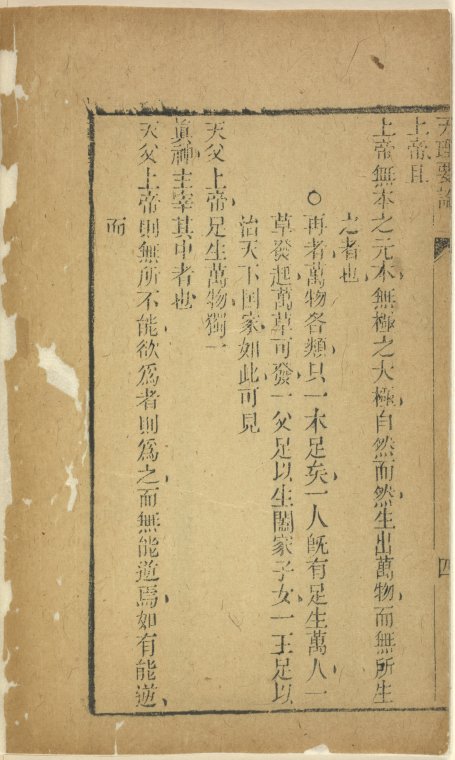 天理要論
四
上帝且
上帝無本之元本無極之大極自然而然生出萬物而無所生
之者也
○再者萬物各類只一本足矣一人旣有足生萬人一
草發起萬草可發一父足以生闔家子女一王足以
治天下国家如此可見
天父上帝足生萬物獨一
眞神主宰其中者也
天父上帝則無所不能欲爲者則爲之而無能逆焉如有能逆
而